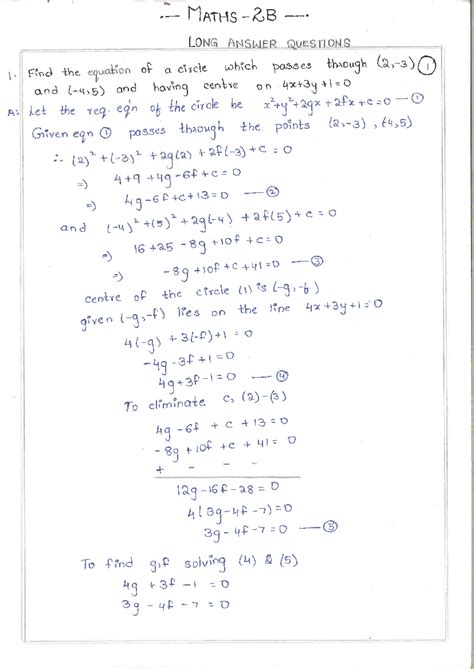 MATHS-2B
LONG ANSWER QUESTIONS
1. Find the equation of a circle which passes through (2,-3) ①
and (-4,5) and having centre on 4x+3y+1=0
A: Let the req. eq'n of the circle be x²+y²+2gx+2fx+c=0 —①
Given eqn ① passes through the points (2,-3), (4,5)
∴ (2)²+(-3)²+2g(2)+2f(-3)+c=0
=) 4+9+4g-6f+c=0
=) 4g-6f+c+13=0 —②
and (-4)²+(5)²+2g(-4)+2f(5)+c=0
=) 16+25-8g+10f+c=0
=) -8g+10f+c+41=0 —③
centre of the circle (1) is (-g,-f)
given (-g,-f) lies on the line 4x+3y+1=0
4(-g)+3(-f)+1=0
-4g-3f+1=0
4g+3f-1=0 —④
To eliminate c, (2)-(3)
4g-6f+c+13=0
-8g+10f+c+41=0
+ - - -
12g-16f-28=0
4(3g-4f-7)=0
3g-4f-7=0 —⑤
To find g,f solving (4) & (5)
4g+3f-1=0
3g-4f-7=0